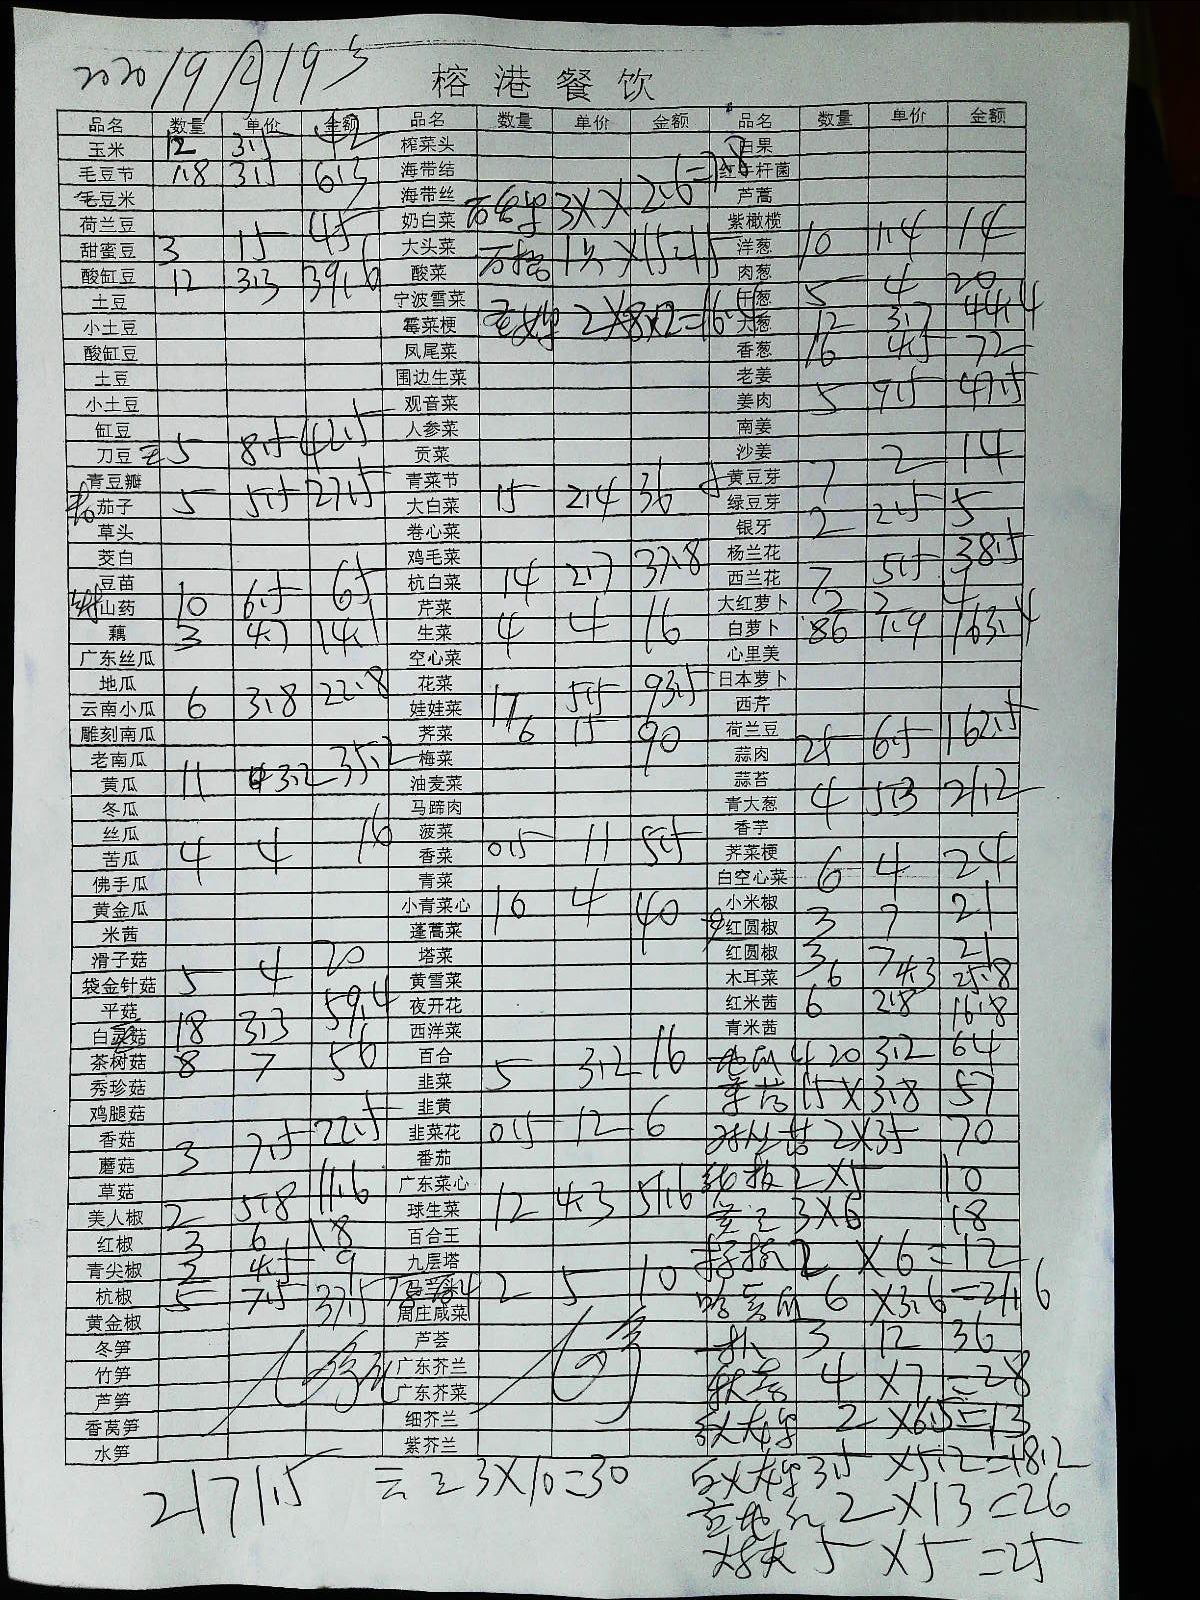 2020/9月19号
榕港餐饮
品名 数量 单价 金额 品名 数量 单价 金额 品名 数量 单价 金额
玉米 12 3.5 42 榨菜头 白果
毛豆节 1.8 3.5 6.3 海带结 红牛杆菌
毛豆米 海带丝 3 X 2.6=7.8 芦蒿
荷兰豆 奶白菜 紫橄榄
甜蜜豆 3 15 45 大头菜 洋葱 10 1.4 14
酸缸豆 12 3.3 39.6 酸菜 肉葱
土豆 宁波雪菜 干葱 5 4 20
小土豆 霉菜梗 大葱 12 3.7 44.4
酸缸豆 凤尾菜 香葱 16 4.5 72
土豆 围边生菜 老姜
小土豆 观音菜 姜肉 5 9.5 47.5
缸豆 人参菜 南姜
刀豆 5 8.5 42.5 贡菜 沙姜
青豆瓣 青菜节 黄豆芽 7 2 14
茄子 5 5.5 27.5 大白菜 15 2.4 36 绿豆芽
草头 卷心菜 银牙 2 2.5 5
茭白 鸡毛菜 杨兰花
豆苗 杭白菜 14 2.7 37.8 西兰花 7 5.5 38.5
山药 10 6.5 65 芹菜 大红萝卜 2 2 4
藕 3 4.7 14.1 生菜 4 4 16 白萝卜 86 1.9 163.4
广东丝瓜 空心菜 心里美
地瓜 花菜 日本萝卜
云南小瓜 6 3.8 22.8 娃娃菜 17 5.5 93.5 西芹
雕刻南瓜 荠菜 6 15 90 荷兰豆
老南瓜 梅菜 蒜肉 25 6.5 162.5
黄瓜 11 3.2 35.2 油麦菜 蒜苔
冬瓜 马蹄肉 青大葱 4 5.3 21.2
丝瓜 菠菜 香芋
苦瓜 4 4 16 香菜 0.5 11 5.5 荠菜梗
佛手瓜 青菜 白空心菜 6 4 24
黄金瓜 小青菜心 10 4 40 小米椒
米茜 蓬蒿菜 红圆椒 3 7 21
滑子菇 塔菜 红圆椒 3 7 21
袋金针菇 5 4 20 黄雪菜 木耳菜 6 4.3 25.8
平菇 夜开花 红米茜 6 2.8 16.8
白灵菇 18 3.3 59.4 西洋菜 青米茜
茶树菇 8 7 56 百合 20 3.2 64
秀珍菇 韭菜 5 3.2 16 15 X 3.8 57
鸡腿菇 韭黄 2 X 35 70
香菇 韭菜花 0.5 12 6
蘑菇 3 7.5 22.5 番茄 2 X 5 10
草菇 广东菜心
美人椒 2 5.8 11.6 球生菜 12 4.3 51.6 3 X 6 18
红椒 3 6 18 百合王
青尖椒 2 4.5 9 九层塔 2 X 6=12
杭椒 5 7.5 37.5 2 5 10 6 X 3.6=21.6
黄金椒 周庄咸菜
冬笋 芦荟 3 12 36
竹笋 广东芥兰 4 X 7=28
芦笋 广东芥菜
香莴笋 细芥兰 2 X 6.5=13
水笋 紫芥兰 3.5 X 5.2=18.2
2171.5 3X10=30
2 X 13=26
5 X 5=25